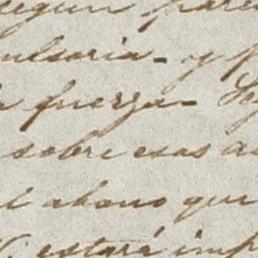 segun pare
ulsoria - y p
fuerza - So
sobre esas a
el abono que
estará imp